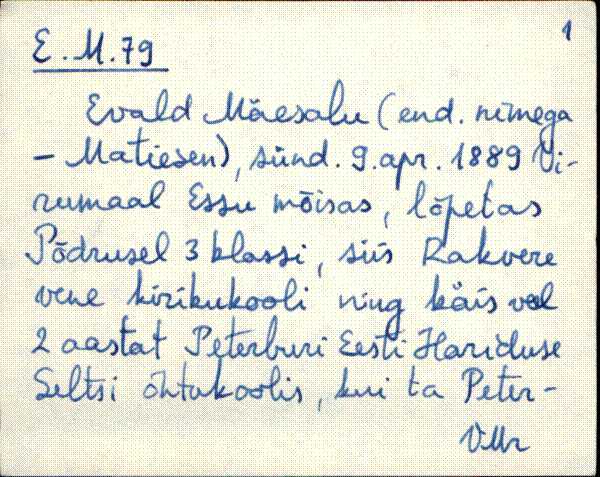 1
E.M.79
Evald Mäesalu (end. nimega
- Matiesen), sünd. 9. apr. 1889 Vi-
rumaal Essu mõisas, lõpetas
Põdrusel 3 klassi, siis Rakvere
vene kirikukooli ning käis veel
2 aastat Peterburi Eesti Hariduse
Seltsi õhtukoolis, kui ta Peter-